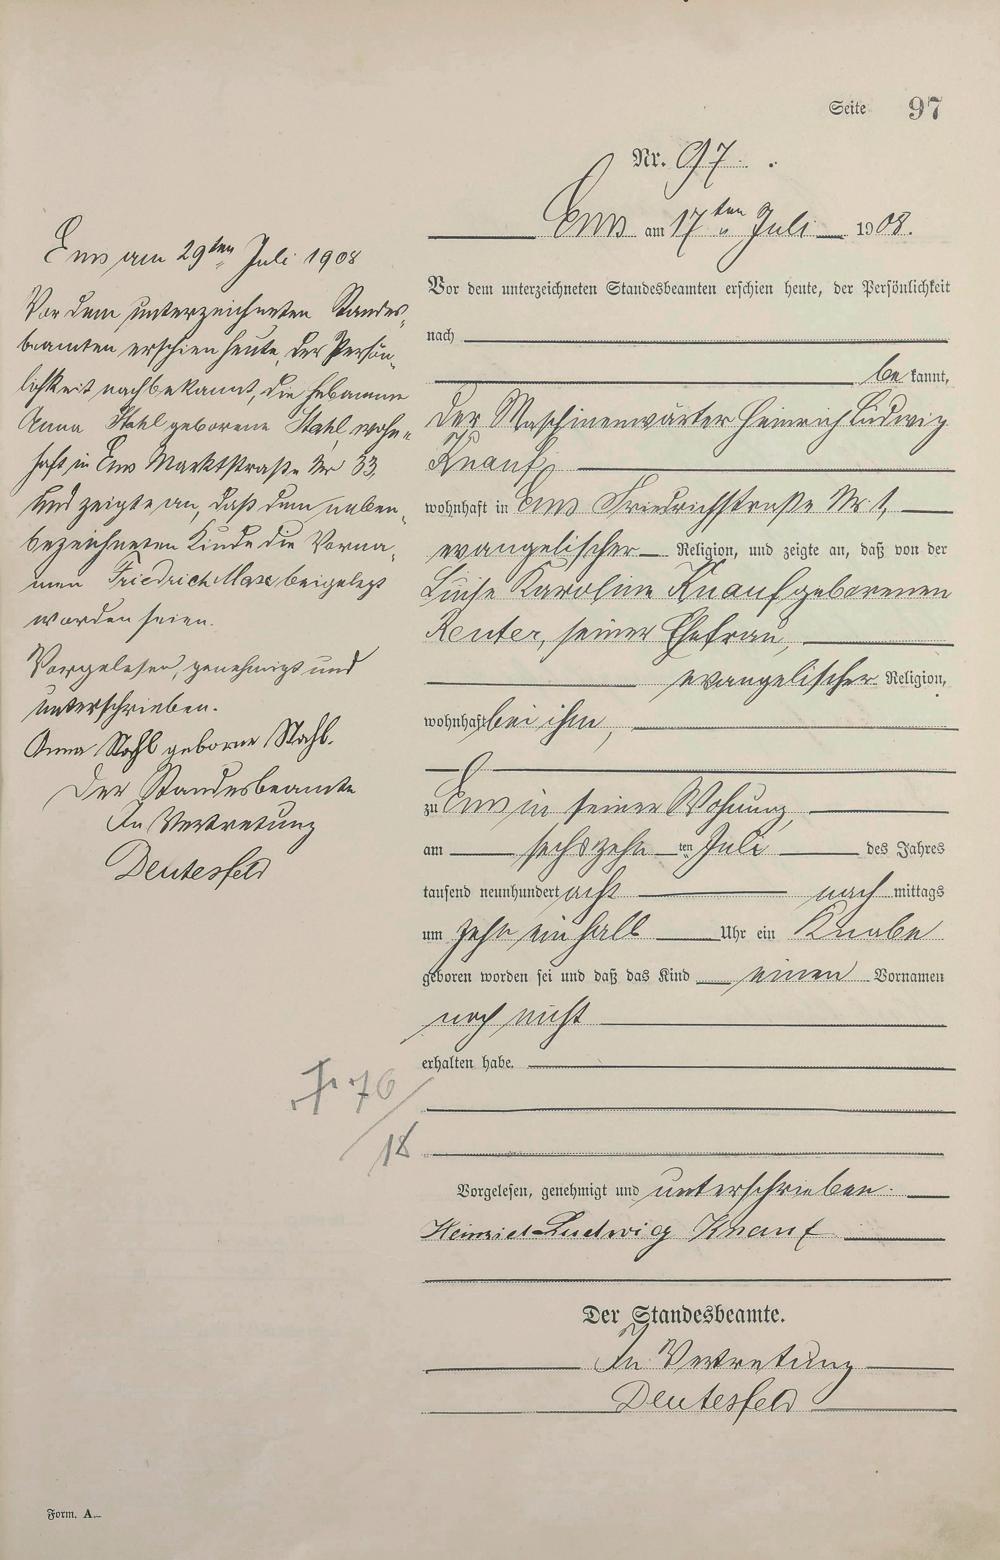 Seite 97
Nr. 97.
Ems am 17ten Juli 1908.
Vor dem unterzeichneten Standesbeamten erschien heute, der Persönlichkeit
nach
be kannt,
der Maschinenwärter Heinrich Ludwig
Knauf,
wohnhaft in Ems Friedrichstraße Nr 1,
evangelischer Religion, und zeigte an, daß von der
Luise Karoline Knauf geborenen
Reuter, seiner Ehefrau,
evangelischer Religion,
wohnhaft bei ihm,
zu Ems in seiner Wohnung,
am sechszehnten Juli des Jahres
tausend neunhundert acht nach mittags
um zehn ein halb Uhr ein Knabe
geboren worden sei und daß das Kind einen Vornamen
noch nicht
erhalten habe.
Vorgelesen, genehmigt und unterschrieben.
Heinrich Ludwig Knauf
Der Standesbeamte.
In Vertretung
Deutesfeld
Ems am 29ten Juli 1908
Vor dem unterzeichneten Standes-
beamten erschien heute, der Persön-
lichkeit nach bekannt, die Hebamme
Anna Stahl geborene Stahl, wohn-
haft in Ems Marktstraße Nr 33,
und zeigte an, daß dem neben-
bezeichneten Kinde die Vorna-
men Friedrich Max beigelegt
worden seien.
Vorgelesen, genehmigt und
unterschrieben.
Anna Stahl geborne Stahl.
Der Standesbeamte
In Vertretung
Deutesfeld
76
18
Form. A.